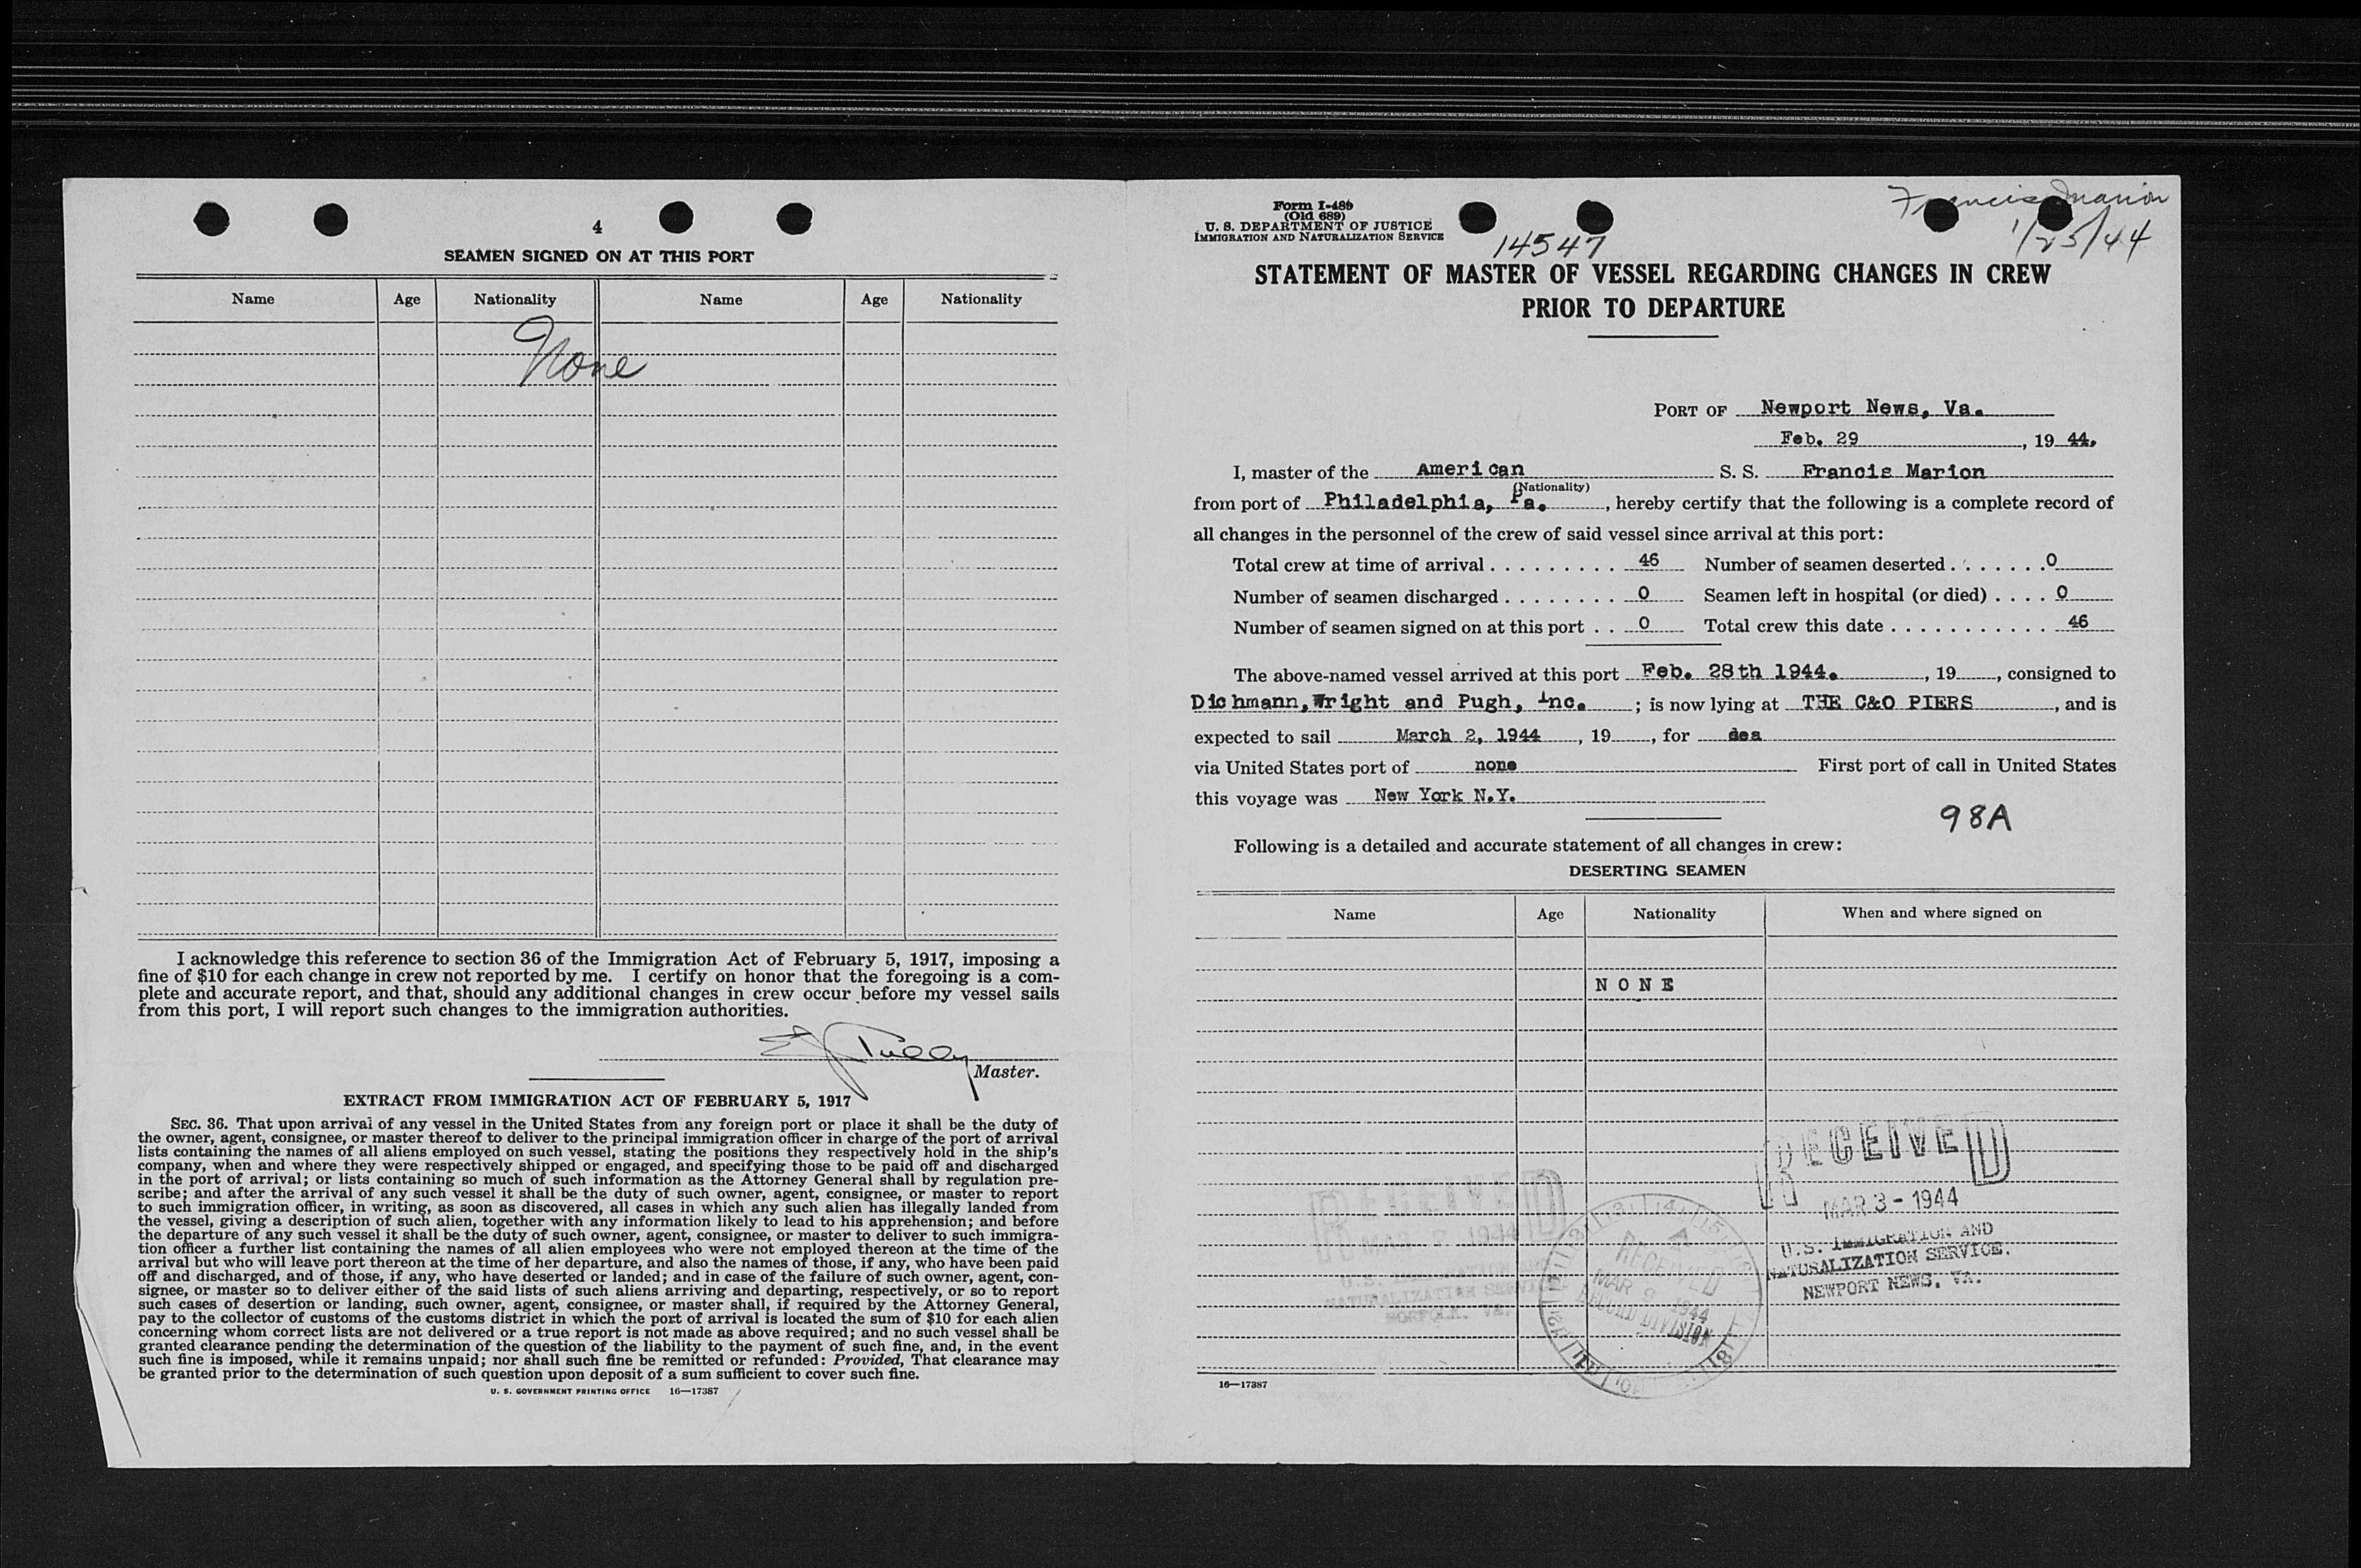 4
SEAMEN SIGNED ON AT THIS PORT
Name Age Nationality Name Age Nationality
None
I acknowledge this reference to section 36 of the Immigration Act of February 5, 1917, imposing a
fine of $10 for each change in crew not reported by me. I certify on honor that the foregoing is a com-
plete and accurate report, and that, should any additional changes in crew occur before my vessel sails
from this port, I will report such changes to the immigration authorities.
Tully
Master.
EXTRACT FROM IMMIGRATION ACT OF FEBRUARY 5, 1917
SEC. 36. That upon arrival of any vessel in the United States from any foreign port or place it shall be the duty of
the owner, agent, consignee, or master thereof to deliver to the principal immigration officer in charge of the port of arrival
lists containing the names of all aliens employed on such vessel, stating the positions they respectively hold in the ship's
company, when and where they were respectively shipped or engaged, and specifying those to be paid off and discharged
in the port of arrival; or lists containing so much of such information as the Attorney General shall by regulation pre-
scribe; and after the arrival of any such vessel it shall be the duty of such owner, agent, consignee, or master to report
to such immigration officer, in writing, as soon as discovered, all cases in which any such alien has illegally landed from
the vessel, giving a description of such alien, together with any information likely to lead to his apprehension; and before
the departure of any such vessel it shall be the duty of such owner, agent, consignee, or master to deliver to such immigra-
tion officer a further list containing the names of all alien employees who were not employed thereon at the time of the
arrival but who will leave port thereon at the time of her departure, and also the names of those, if any, who have been paid
off and discharged, and of those, if any, who have deserted or landed; and in case of the failure of such owner, agent, con-
signee, or master so to deliver either of the said lists of such aliens arriving and departing, respectively, or so to report
such cases of desertion or landing, such owner, agent, consignee, or master shall, if required by the Attorney General,
pay to the collector of customs of the customs district in which the port of arrival is located the sum of $10 for each alien
concerning whom correct lists are not delivered or a true report is not made as above required; and no such vessel shall be
granted clearance pending the determination of the question of the liability to the payment of such fine, and, in the event
such fine is imposed, while it remains unpaid; nor shall such fine be remitted or refunded: Provided, That clearance may
be granted prior to the determination of such question upon deposit of a sum sufficient to cover such fine.
U. S. GOVERNMENT PRINTING OFFICE 16—17387
Form I-489
(Old 689)
U. S. DEPARTMENT OF JUSTICE
IMMIGRATION AND NATURALIZATION SERVICE
14547
Francis Marion
1/25/44
STATEMENT OF MASTER OF VESSEL REGARDING CHANGES IN CREW
PRIOR TO DEPARTURE
PORT OF Newport News, Va.
Feb. 29, 19 44.
I, master of the American S. S. Francis Marion
(Nationality)
from port of Philadelphia, Pa., hereby certify that the following is a complete record of
all changes in the personnel of the crew of said vessel since arrival at this port:
Total crew at time of arrival . . . . . . . . . 46 Number of seamen deserted . . . . . . . 0
Number of seamen discharged . . . . . . . . 0 Seamen left in hospital (or died) . . . . 0
Number of seamen signed on at this port . . 0 Total crew this date . . . . . . . . . . . . 46
The above-named vessel arrived at this port Feb. 28th 1944., 19, consigned to
Dichmann, Wright and Pugh, Inc. ; is now lying at THE C&O PIERS, and is
expected to sail March 2, 1944, 19, for
via United States port of none First port of call in United States
this voyage was New York N.Y.
98A
Following is a detailed and accurate statement of all changes in crew:
DESERTING SEAMEN
Name Age Nationality When and where signed on
NONE
RECEIVED
MAR 3 - 1944
U.S. IMMIGRATION AND
NATURALIZATION SERVICE.
NEWPORT NEWS, VA.
RECEIVED
MAR 1944
NATURALIZATION SERVICE
NORFOLK, VA.
RECEIVED
MAR 1944
RECORD DIVISION
16—17387